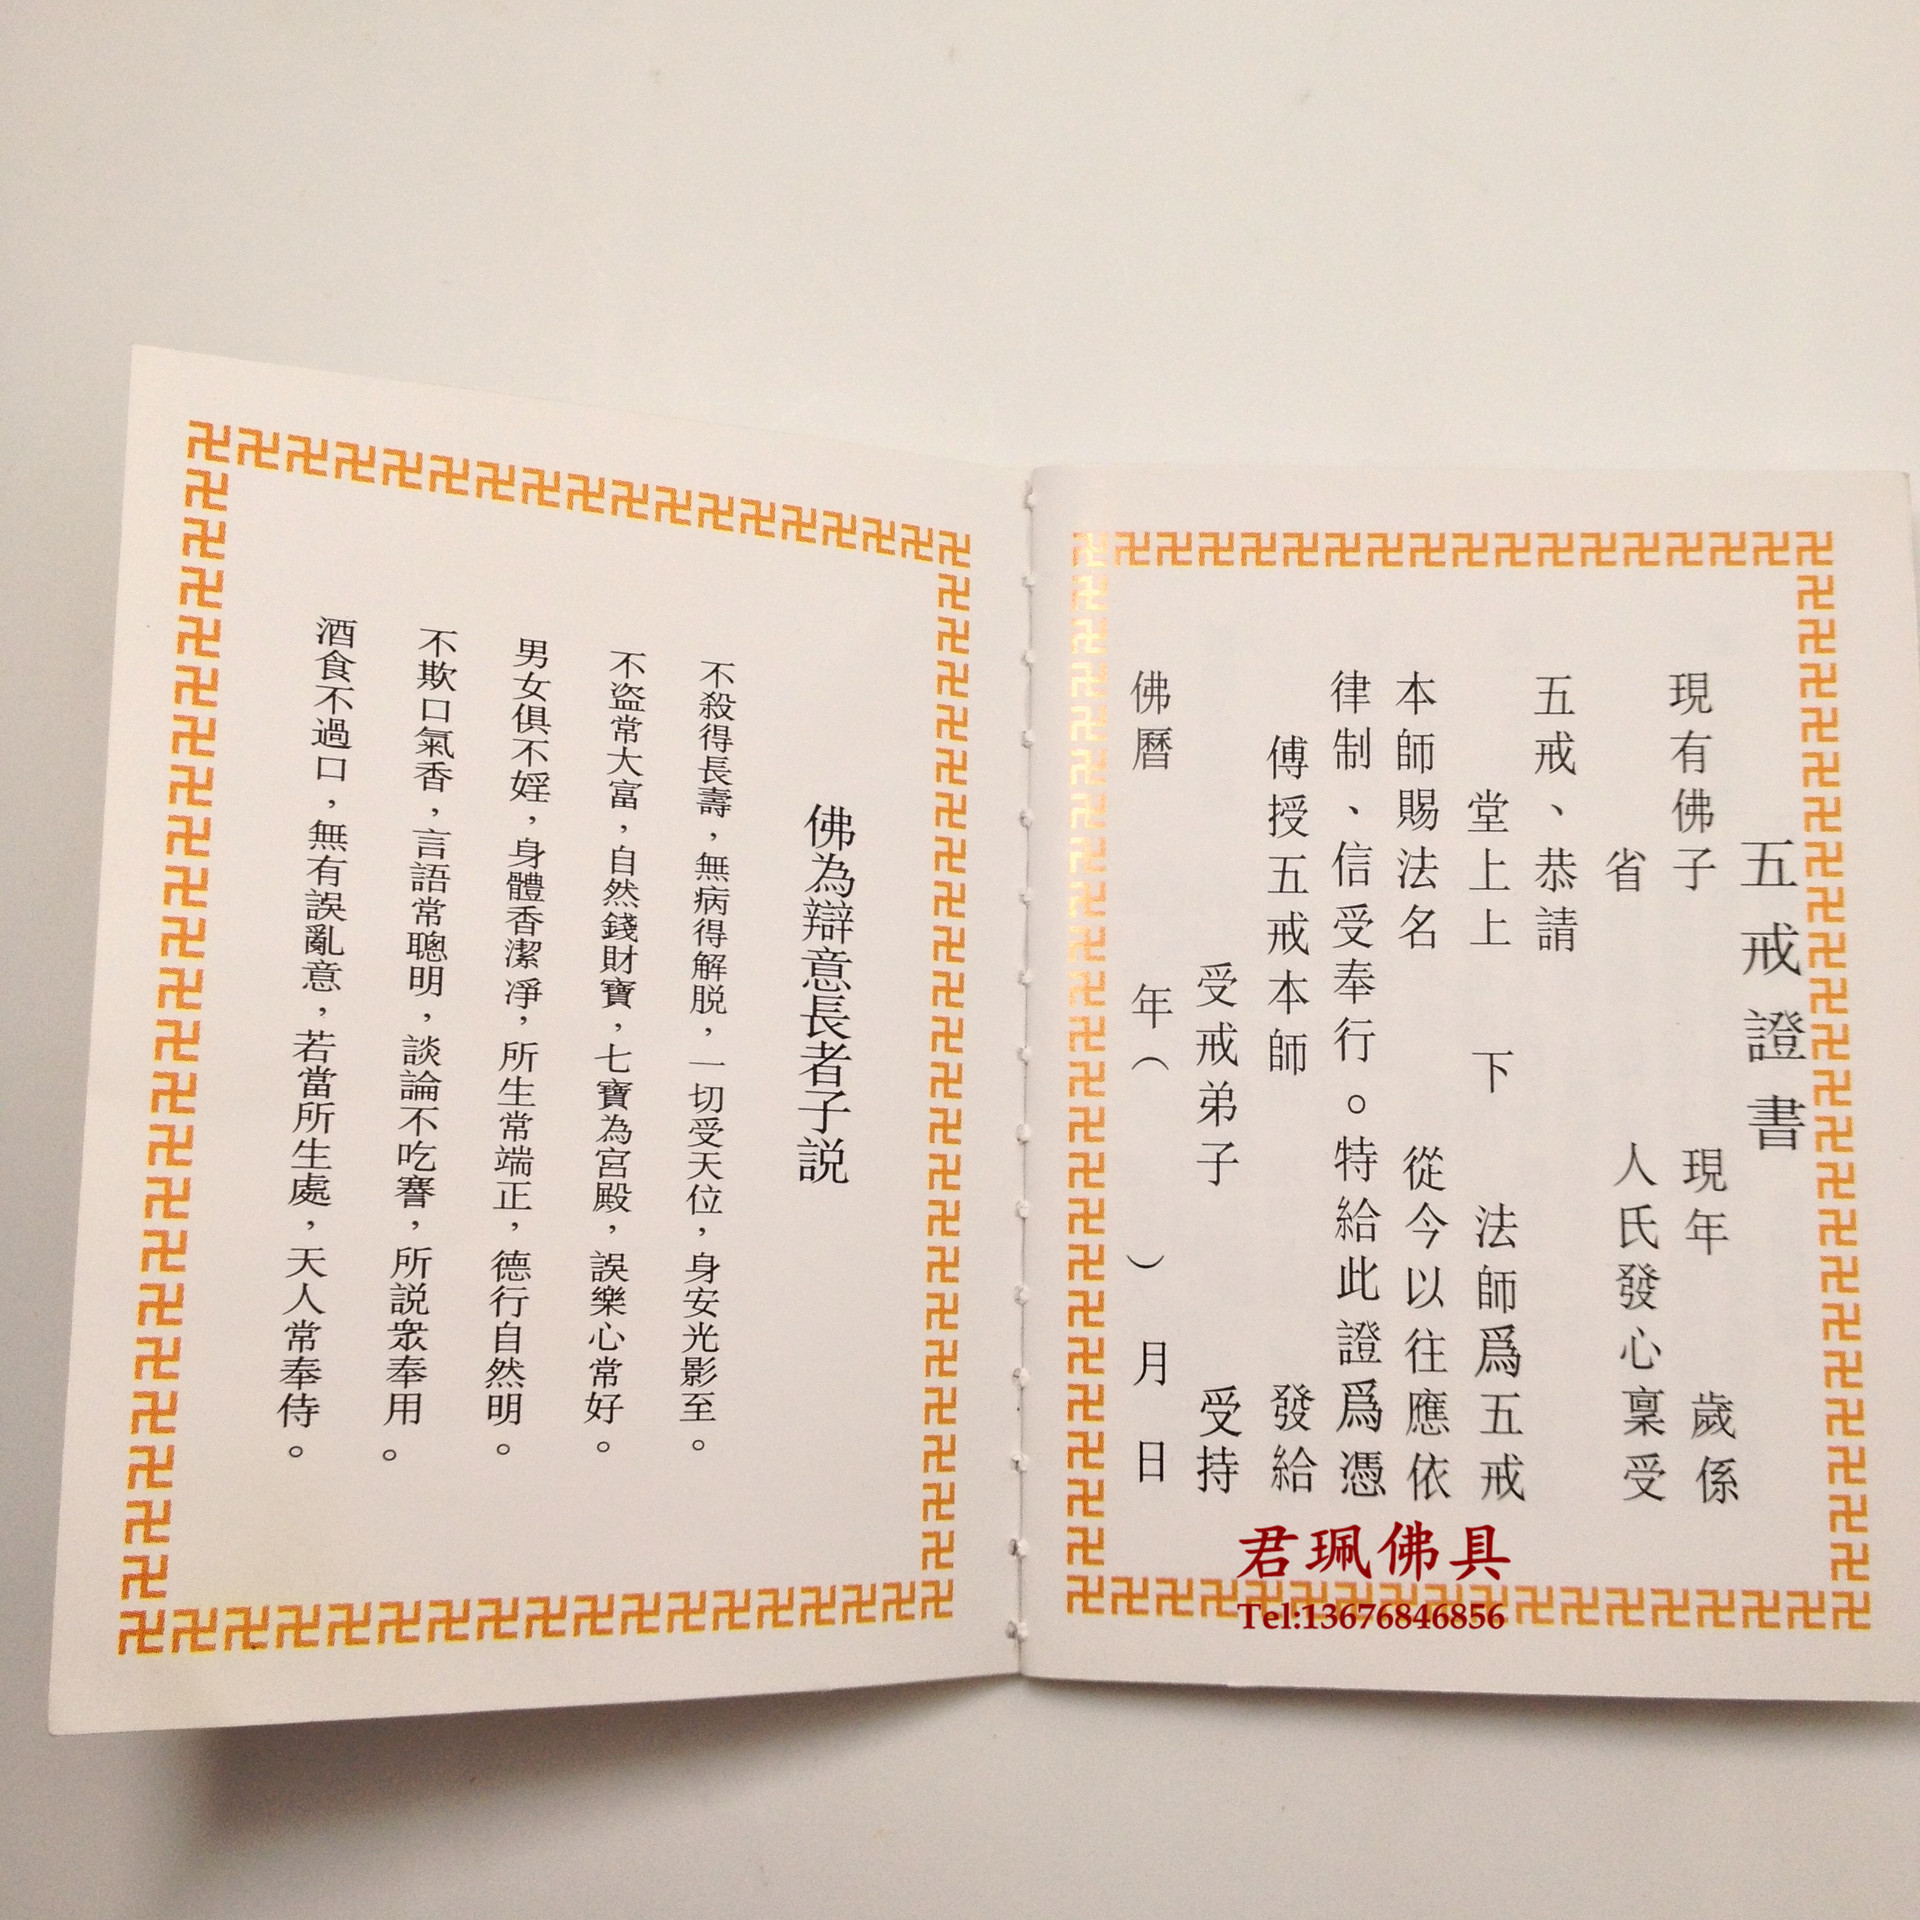 五戒證書
現有佛子 現年 歲係
省 人氏發心稟受
五戒、恭請
堂上上 下 法師爲五戒
本師賜法名 從今以往應依
律制、信受奉行。特給此證爲憑
傅授五戒本師 發給
受戒弟子 受持
佛曆 年（ ） 月 日
佛為辯意長者子説
不殺得長壽，無病得解脱，一切受天位，身安光影至。
不盗常大富，自然錢財寶，七寶為宮殿，誤樂心常好。
男女俱不婬，身體香潔凈，所生常端正，德行自然明。
不欺口氣香，言語常聰明，談論不吃謇，所説衆奉用。
酒食不過口，無有誤亂意，若當所生處，天人常奉侍。
君珮佛具
Tel:13676846856